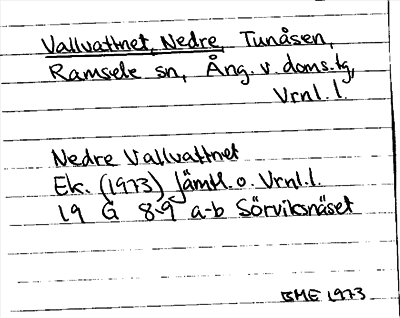 Vallvattnet, Nedre, Tunåsen,
Ramsele sn, Ång. v. doms.tg,
Vrnl.l.
Nedre Vallvattnet
Ek. (1973) Jämtl. o. Vrnl.l.
19 G 8-9 a-b Sörviksnäset
BME 1973